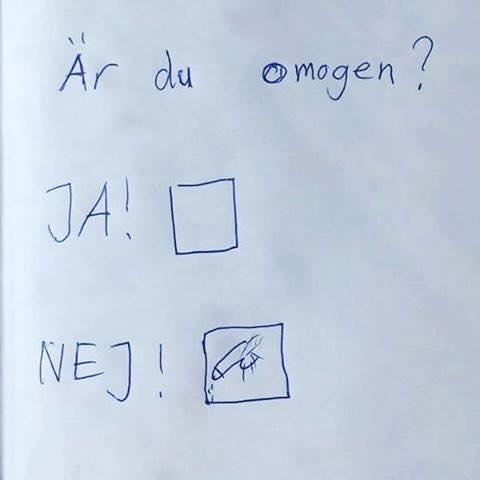 Är du omogen?
JA!
NEJ!